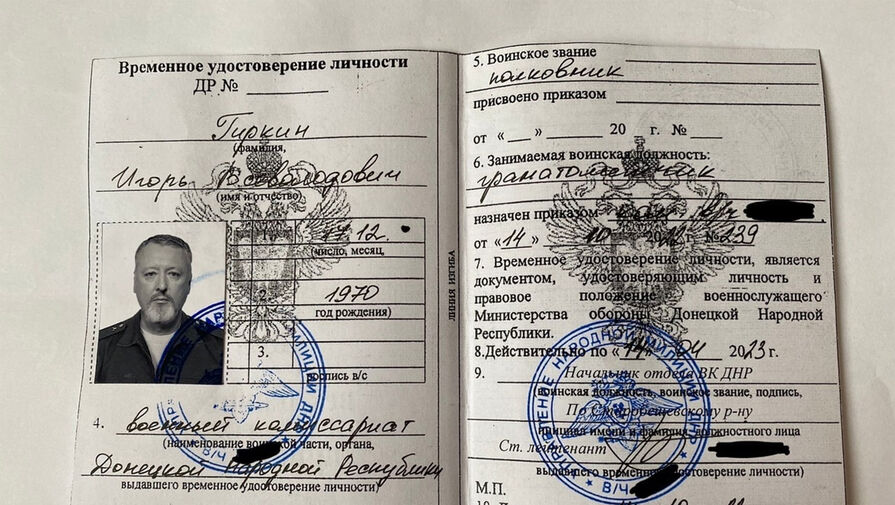 Временное удостоверение личности
ДР №
Гиркин
(фамилия,
Игорь Всеволодович
(имя и отчество)
17.12.
(число, месяц,
2.
1970
год рождения)
3.
роспись в/с
4. военный комиссариат
(наименование воинской части, органа,
Донецкой Народной Республики
выдавшего временное удостоверение личности)
ЛИНИЯ ИЗГИБА
5. Воинское звание
полковник
присвоено приказом
от « » 20 г. №
6. Занимаемая воинская должность:
гранатометчик
назначен приказом в/ч
от «14» 10 2022 г. №239
7. Временное удостоверение личности, является
документом, удостоверяющим личность и
правовое положение военнослужащего
Министерства обороны Донецкой Народной
Республики.
8.Действительно по «14» 04 2023 г.
9. Начальник отдела ВК ДНР
воинская должность, воинское звание, подпись,
По Старобешевскому р-ну
инициал имени и фамилия должностного лица
Ст. лейтенант
выдавшего временное удостоверение личности)
М.П.
НАРОДНОЙ МИЛИЦИИ ДНР
В/Ч